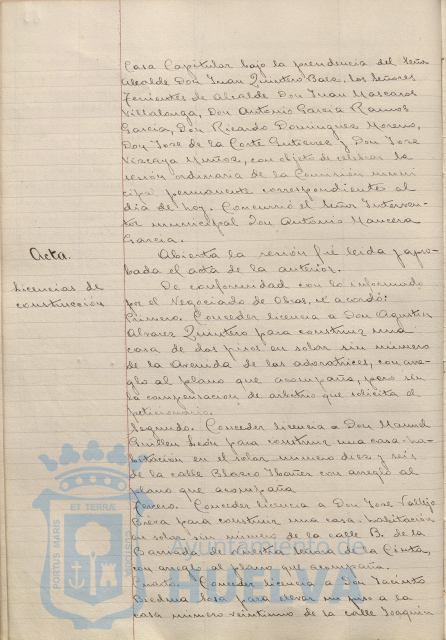 Casa Capitular bajo la presidencia del Señor
Alcalde Don Juan Quintero Baez, los Señores
Tenientes de Alcalde Don Juan Mascaros
Villalonga, Don Antonio Garcia Ramos
Garcia, Don Ricardo Dominguez Moreno,
Don Jose de la Corte Gutierrez y Don Jose
Vizcaya Muñoz, con objeto de celebrar la
sesión ordinaria de la Comisión muni
cipal permanente correspondiente al
dia de hoy. Concurrió el Señor Interven-
tor municipal Don Antonio Mancera
Garcia.
Acta.
Abierta la sesión fué leida y apro-
bada el acta de la anterior.
Licencias de
construcción
De conformidad con lo informado
por el Negociado de Obras, se acordó:
Primero. Conceder licencia a Don Agustin
Alvarez Quintero para construir una
casa de dos pisos en solar sin numero
de la Avenida de las adoratrices, con arre-
glo al plano que acompaña, pero sin
la compensacion de arbitrio que solicita el
peticionario.
Segundo. Conceder licencia a Don Manuel
Guillen León para construir una casa-ha-
bitación en el solar numero diez y seis
de la calle Blasco Ibañez con arreglo al
plano que acompaña
Tercero. Conceder licencia a Don Jose Vallejo
para construir una casa-habitación
en solar sin numero de la calle B. de la
Barriada de Nuestra Señora de la Cinta,
con arreglo al plano que acompaña.
Cuarto. Conceder licencia a Don Jacinto
Bledma para elevar un piso a la
casa numero veintiuno de la calle Joaquin
PORTUS MARIS
ET TERRÆ
Ayuntamiento de
HUELVA